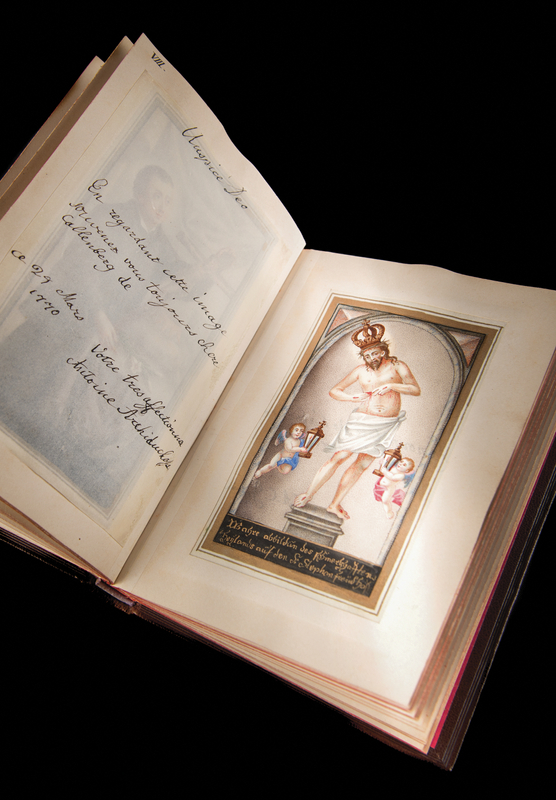 VIII.
Auspice Deo
En regardant cette image
souvenez vous toujours chere
Callenberg de
ce 27 Mars
1770
Votre tres affectionné
Antoine Archiduc
Wahre abbildũn des
Heÿlands auf den St Stephan freidhof